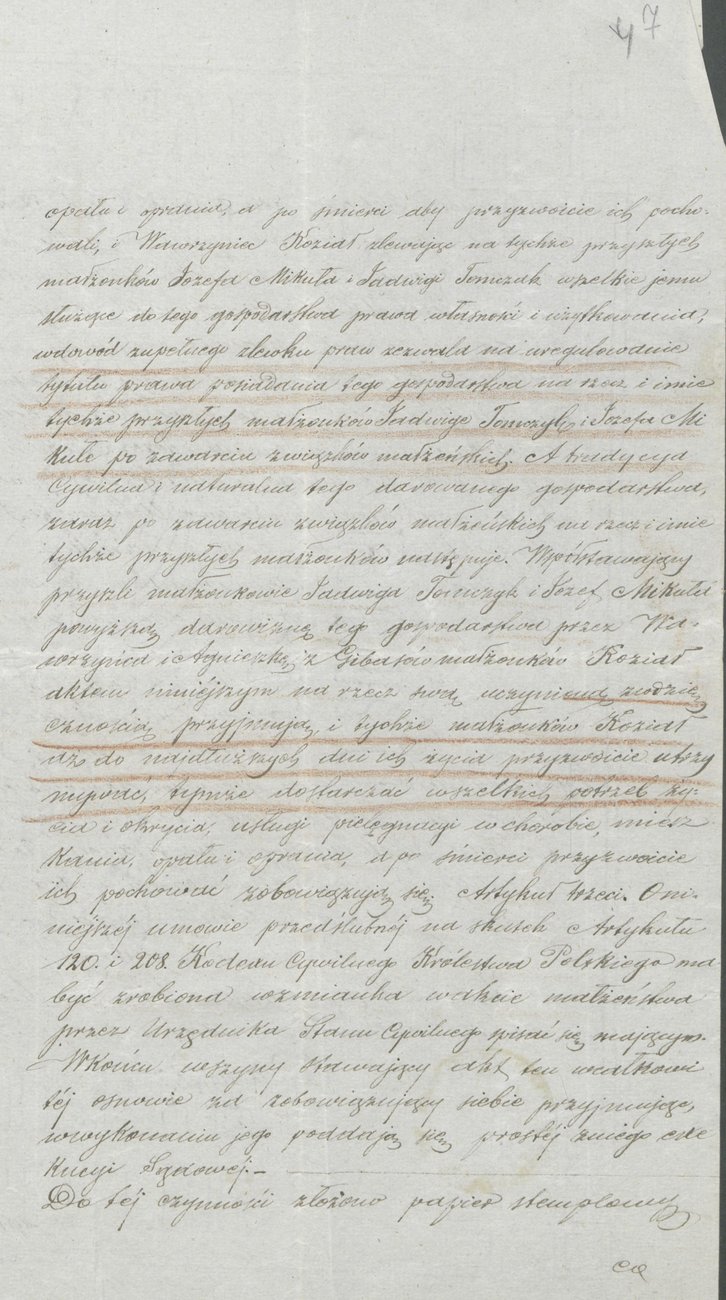 47
opału i oprania, a po śmierci aby przyzwoicie ich pocho-
wali, i Wawrzyniec Koział zlewając na tychże przyszłych
małżonków Józefa Mikuła i Jadwigi Tomczak wszelkie jemu
służące do tego gospodarstwa prawa własności i użytkowania,
wdowód zupełnego zlewku praw zezwala na uregulowanie
tytułu prawa posiadania tego gospodarstwa na rzecz i imie
tychże przyszłych małżonków Jadwigę Tomczyk i Józefa Mi
kułę po zawarciu związków małżeńskich. A tradycya
Cywilna i naturalna tego darowanego gospodarstwa,
zaraz po zawarciu związków małżeńskich na rzecz i imie
tychże przyszłych małżonków następuje. Współstawający
przyszli małżonkowie Jadwiga Tomczyk i Józef Mikuła
powyższą darowiznę tego gospodarstwa przez Wa-
wrzyńca i Agnieszkę z Gibasów małżonków Koział
aktem niniejszym na rzecz swą uczynioną z wdzię
cznością przyjmują, i tychże małżonków Koział
aż do najdłuższych dni ich życia przyzwoicie utrzy
mywać, tymże dostarczać wszelkich potrzeb ży-
cia i okrycia, usługi pielęgnacyi w chorobie, miesz
kania, opału i oprania, a po śmierci przyzwoicie
ich pochować zobowiązują się. Artykuł trzeci. O ni-
niejszéj umowie przedślubnéj na skutek Artykułu
120. i 208. Kodexu Cywilnego Królestwa Polskiego ma
być zrobiona wzmianka w akcie małżeństwa
przez Urzędnika Stanu Cywilnego spisać się mającym.
W końcu wszyscy stawający akt ten w całkowi
téj osnowie za zobowiązujący siebie przyjmując,
w wykonaniu jego poddają się prostéj z niego exe
kucyi Sądowéj.—
Do téj czynności złożono papier stemplowy